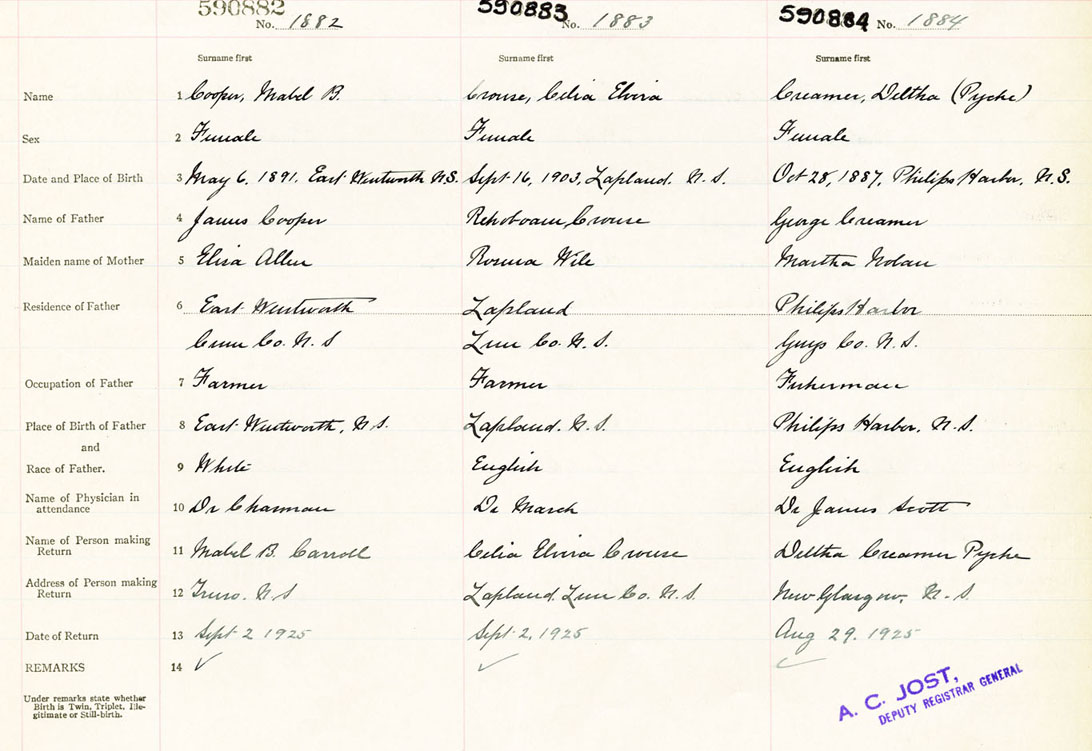 590882 590883 590884
No. 1882 No. 1883 No. 1884
Surname first Surname first Surname first
Name 1 Cooper, Mabel B. Crouse, Celia Elvira Creamer, Deltha (Pyche)
Sex 2 Female Female Female
Date and Place of Birth 3 May 6, 1891, East Wentworth N.S. Sept 16, 1903, Lapland. N. S. Oct 28, 1887, Philips Harbor, N.S.
Name of Father 4 James Cooper Rehoboam Crouse George Creamer
Maiden name of Mother 5 Elisa Allen Rosina Wile Martha Nolan
Residence of Father 6 East Wentworth Lapland Philips Harbor
Cum Co. N. S Lun Co. N. S. Guys Co. N. S.
Occupation of Father 7 Farmer Farmer Fisherman
Place of Birth of Father 8 East Wentworth, N.S. Lapland. N. S. Philips Harbor, N.S.
and
Race of Father. 9 White English English
Name of Physician in
attendance 10 Dr Charman Dr March Dr James Scott
Name of Person making
Return 11 Mabel B. Carroll Celia Elvira Crouse Deltha Creamer Pyche
Address of Person making
Return 12 Truro. N. S Lapland. Lun Co. N. S. New Glasgow, N. S.
Date of Return 13 Sept 2 1925 Sept 2, 1925 Aug 29. 1925
REMARKS 14 ✓ ✓ ✓
Under remarks state whether
Birth is Twin, Triplet, Ille-
gitimate or Still-birth.
A. C. JOST,
DEPUTY REGISTRAR GENERAL